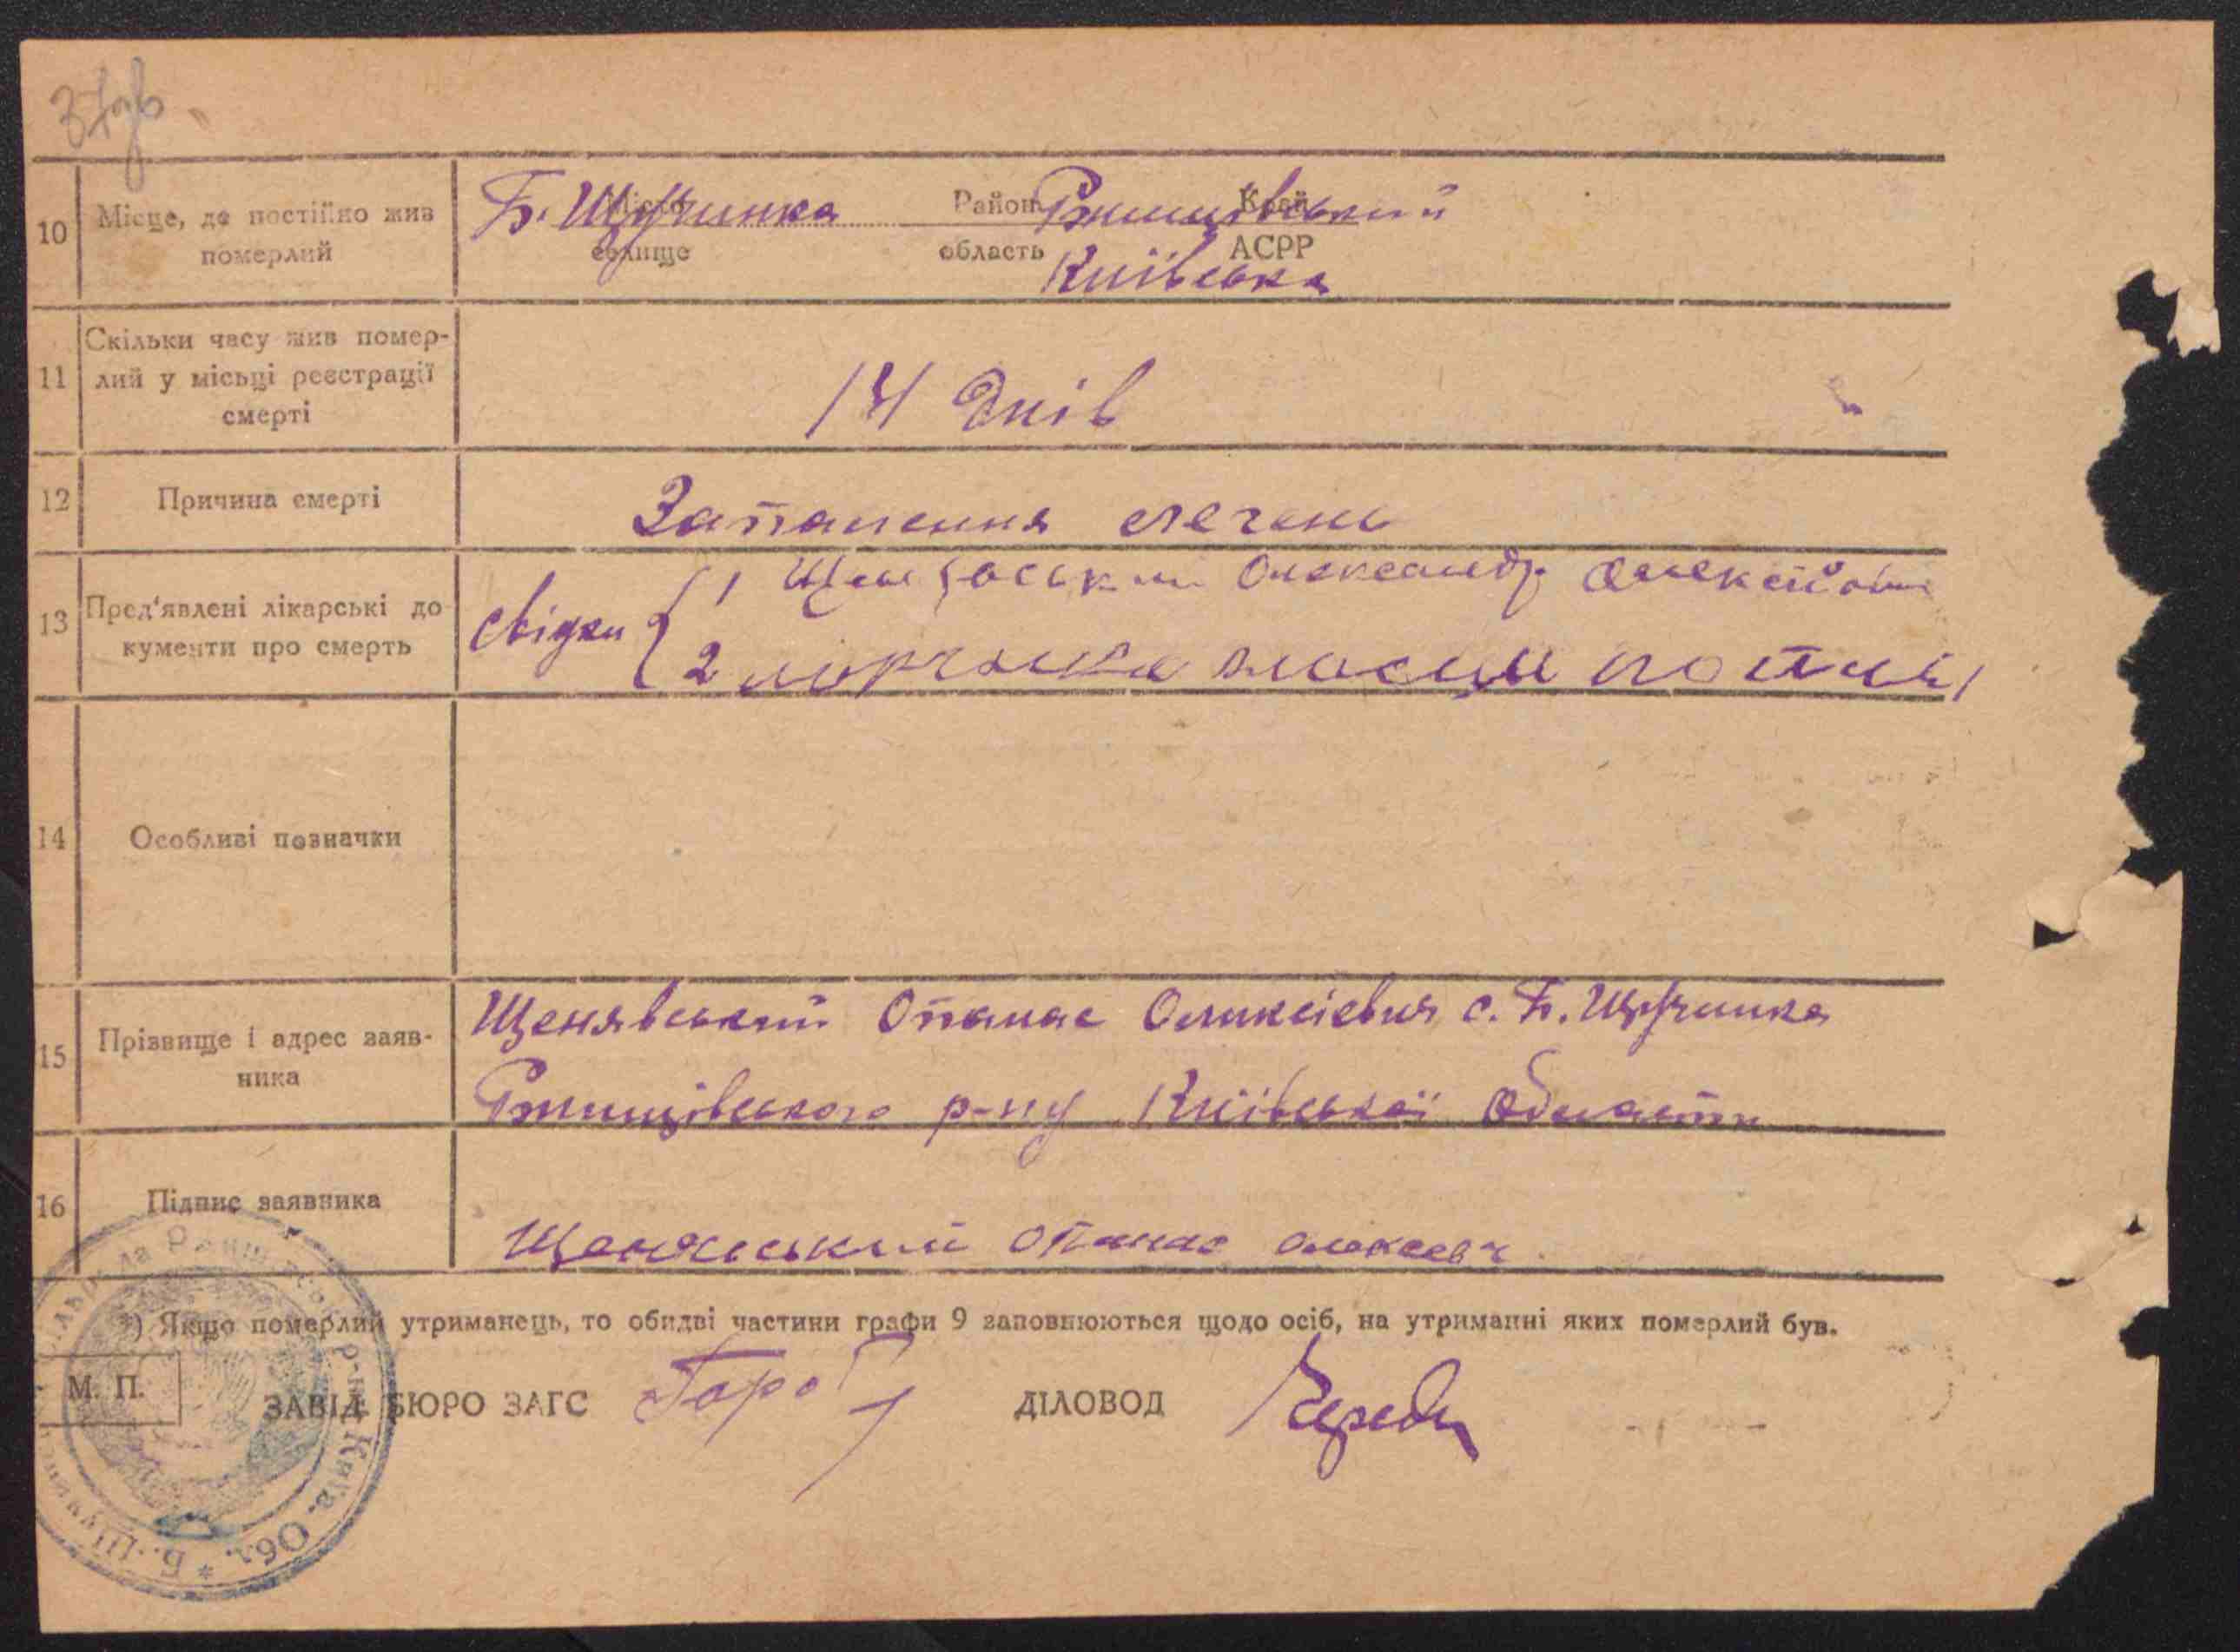 10 Місце, де постійно жив померлий
Б. Щучинка Місто Район Ржищівський Край
селище область Київська АСРР
11 Скільки часу жив помер-
лий у місьці реєстрації
смерті
14 днів
12 Причина смерті
Запалення легень
13 Пред'явлені лікарські до
кументи про смерть
свідки { 1 Олександр
2
14 Особливі позначки
15 Прізвище і адрес заяв-
ника
Щенявський Опанас Оликсієвич с. Б. Щучинка
Ржищівського р-ну Київської области
16 Підпис заявника
Щенявський Опанас
*) Якщо померлий утриманець, то обидві частини графи 9 заповнюються щодо осіб, на утриманні яких померлий був.
М. П.
ЗАВІД. БЮРО ЗАГС ДІЛОВОД
р-ну Київ. Обл. * Б.